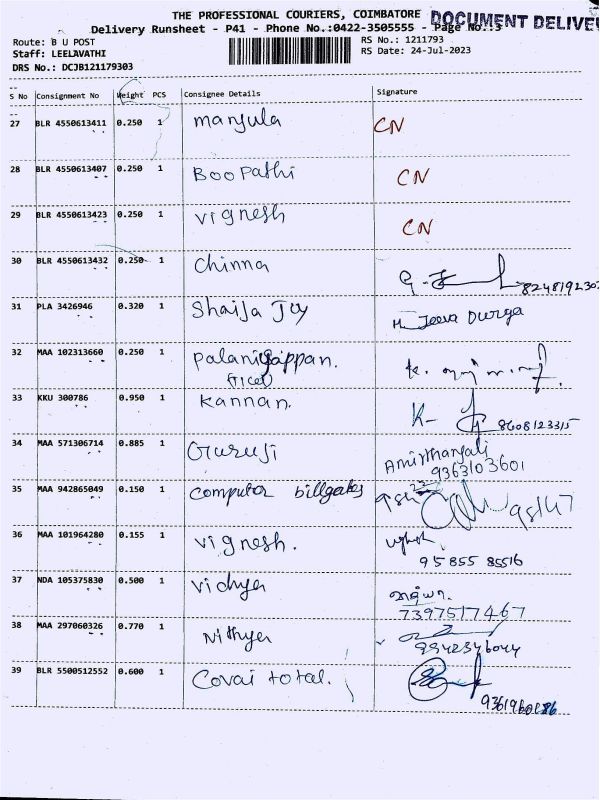 THE PROFESSIONAL COURIERS, COIMBATORE
DOCUMENT DELIVE
Delivery Runsheet - P41 - Phone No.:0422-3505555 - Page No.:3
Route: B U POST
RS No.: 1211793
Staff: LEELAVATHI
RS Date: 24-Jul-2023
DRS No.: DCJB121179303
S No Consignment No Weight PCS Consignee Details Signature
27 BLR 4550613411 0.250 1 Manjula CN
28 BLR 4550613407 0.250 1 Boopathi CN
29 BLR 4550613423 0.250 1 Vignesh CN
30 BLR 4550613432 0.250 1 Chinna
31 PLA 3426946 0.320 1 Shaija Joy M Jeeva Durga
32 MAA 102313660 0.250 1 Palaniyappan.
33 KKU 300786 0.950 1 Kannan. K-
8608123315
34 MAA 571306714 0.885 1 Guruji Amirthanjali
9363103601
35 MAA 942865049 0.150 1 Computer billgates
36 MAA 101964280 0.155 1 Vignesh.
95855 85516
37 NDA 105375830 0.500 1 Vidhya
7397517467
38 MAA 297060326 0.770 1 Nithya
9942346044
39 BLR 5500512552 0.600 1 Covai total.